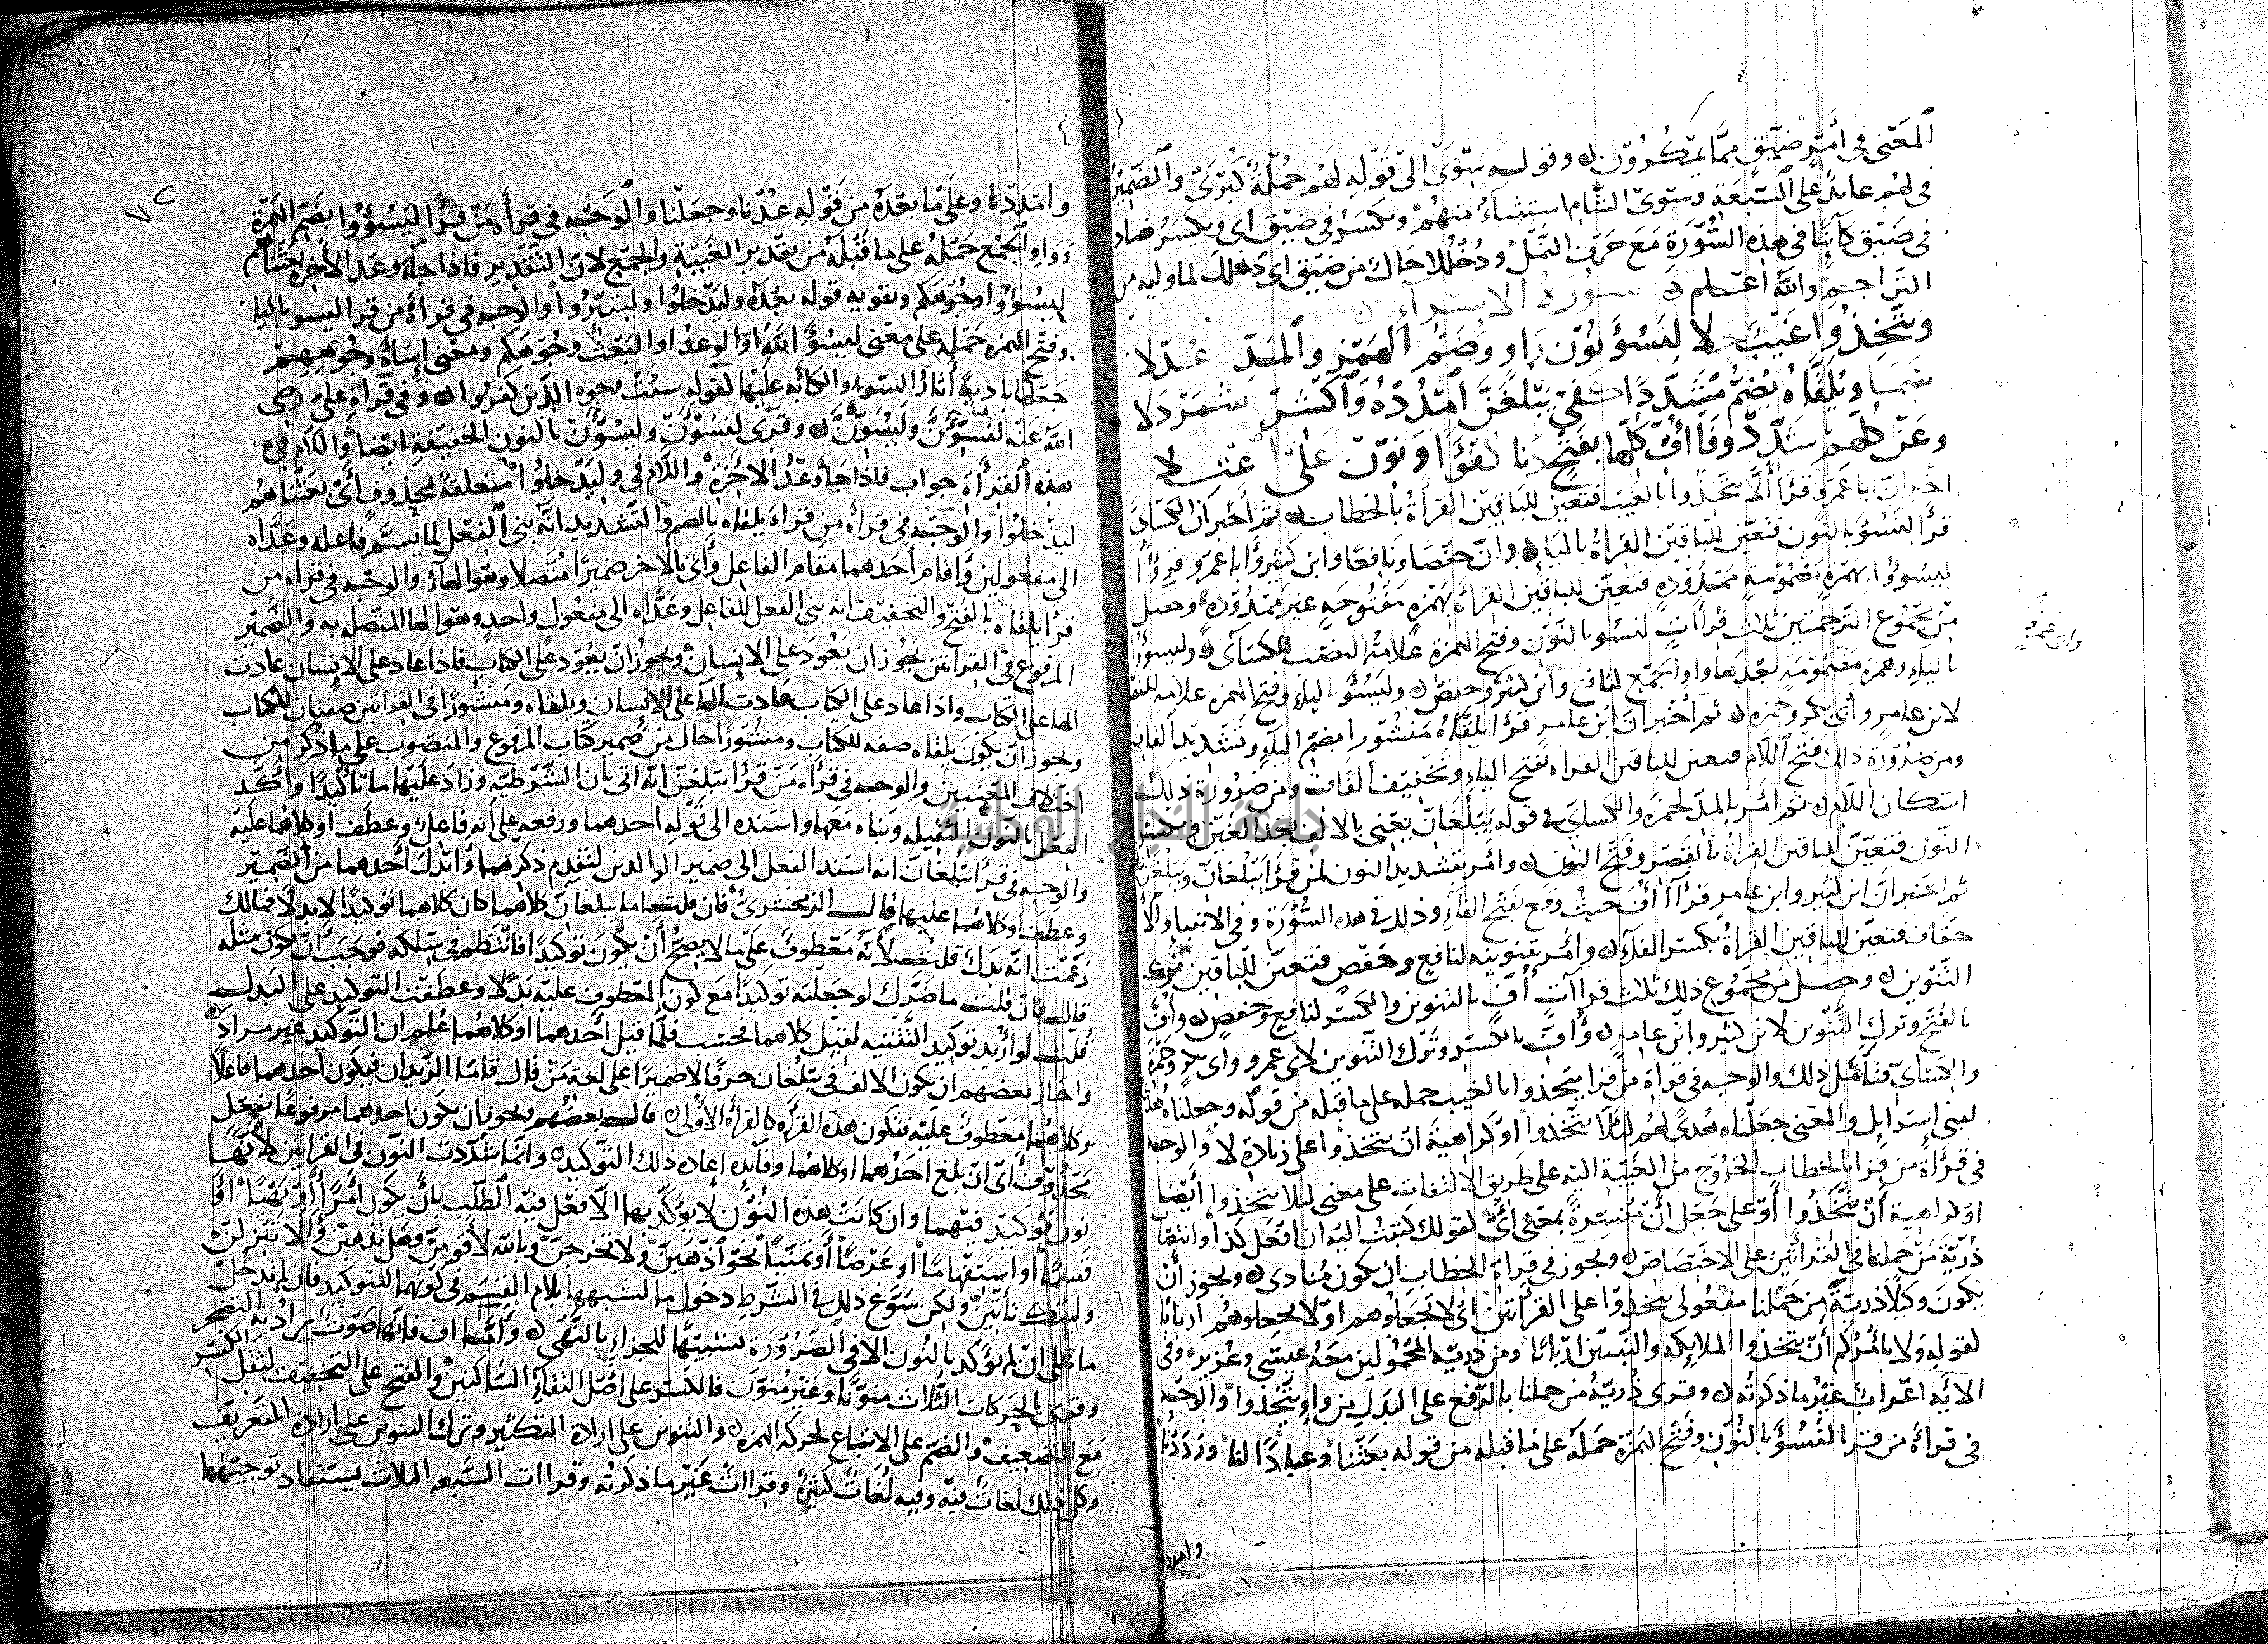 المعنى في أمر ضيق مما يمكرون وقوله سوى الى قوله لهم جملة كبرى والضمير
في لهم عايد على السبعة وسوى الشام استثناء منهم وبكسر في ضيق اى ويكسر ضاد
في ضيق كاينا في هذه السورة مع حرف النمل ودخللا حال من ضيق اى دخللت لما وليه من
التراجم والله اعلم سورة الاسراء
ويتخذوا غيب حلا ليسوؤ نون راو وضم الهمز والمد عدلا
سما ويلقاه يضم مشددا كفى يبلغن امدده واكسر شمردلا
وعن كلهم شدد وفا اف كلها بفتح دنا كفؤا ونون على اعتلا
اخبر ان ابا عمرو قرأ ألا يتخذوا بالغيب فتعين للباقين القراة بالخطاب ثم أخبر ان الكسائي
قرأ لنسوؤ بالنون فتعين للباقين القراة بالياء وان حفصا ونافعا وابن كثير وأبا عمرو قرؤا
ليسوؤا بهمزة مضمومة ممدودة فتعين للباقين القراة بهمزة مفتوحة غير ممدودة وحصل
من مجموع الترجمتين ثلث قراات لنسوء بالنون وفتح الهمزة علامة النصب للكسائى وليسوؤا
بالياء وهمزة مضمومة بعدها واو الجمع لنافع وابن كثير وحفص وليسوء بالياء وفتح الهمزة علامة للنصب
لابن عامر وأبى بكر وحمزة ثم أخبر أن ابن عامر قرأ يلقاه منشورا بضم الياء وتشديد القاف
ومن ضرورة ذلك فتح اللام فتعين للباقين القراة بفتح الياء وتخفيف القاف ومن ضرورة ذلك
اسكان اللام ثم امر بالمد لحمزة والكسائى في قوله يبلغان يعنى بالالف بعد الغين وكسر
النون فتعين للباقين القراة بالقصر وفتح النون وأمر بتشديد النون لمن قرأ يبلغان ويبلغن
ثم اخبر ان ابن كثير وابن عامر قرأا أف حيث وقع بفتح الفاء وذلك في هذه السورة وفي الانبياء والا
حقاف فتعين للباقين القراة بكسر الفاء وأمر بتنوينه لنافع وحفص فتعين للباقين ترك
التنوين وحصل من مجموع ذلك ثلاث قراآت أف بالتنوين والكسر لنافع وحفص وأف
بالفتح وترك التنوين لابن كثير وابن عامر وأف بالكسر وترك التنوين لابى عمرو وابى بكر وحمزة
والكسائى فتأمل ذلك والوجه في قراة من قرا يتخذوا بالغيب حمله على ما قبله من قوله وجعلناه هدى
لبنى اسرايل والمعنى جعلناه هدى لهم لئلا يتخذوا او كراهية ان يتخذوا على زيادة لا والوجه
في قراة من قرا بالخطاب الخروج من الغيبة اليه على طريق الالتفات على معنى لئلا تتخذوا أيضا
او كراهية أن تتخذوا أو على جعل أن مفسرة بمعنى أي كقولك كتبت اليه ان افعل كذا وانتصا
ذرية من حملنا في القراتين على الاختصاص ويجوز في قراة الخطاب ان يكون منادى ويجوز أن
يكون وكيلا ذرية من حملنا مفعولى يتخذوا على القراتين اى لا تجعلوهم او لا يجعلوهم اربابا
لقوله ولا يأمركم أن تتخذوا الملايكة والنبيين اربابا ومن ذرية المحمولين معه عيسى وعزير وفي
الاية اعراب غير ما ذكرته وقرى ذرية من حملنا بالرفع على البدل من واو يتخذوا والوجه
في قراة من قرا لنسوء بالنون وفتح الهمزة حمله على ما قبله من قوله بعثنا وعبادا لنا ورددنا
وامددنا
٧٢
وامددنا وعلى ما بعده من قوله عدنا وجعلنا والوجه في قرأة من قرا ليسوؤوا بضم الهمزة
وواو الجمع حمله على ما قبله من تقدير الغيبة والجمع لان التقدير فاذا جاء وعد الآخرة بعثناهم
ليسوؤوا وجوهكم ويقويه قوله بعده وليدخلوا وليتبروا والوجه في قرأة من قرا ليسوء بالياء
وفتح الهمزة حمله على معنى ليسوء الله او الوعد او البعث وجوهكم ومعنى إساءة وجوههم
جعلها بادية أثار السوء والكآبة عليها لقوله سيئت وجوه الذين كفروا وفي قراة على رضى
الله عنه لنسوءن وليسوءن وقرى لنسوءن وليسوءن بالنون الخفيفة ايضا واللام في
هذه القراءة جواب فاذا جاء وعد الاخرة واللام في وليدخلوا متعلقة بمحذوف أى بعثناهم
ليدخلوا والوجه في قرأة من قراء يلقاه بالضم والتشديد انه بنى الفعل لما يسم فاعله وعداه
الى مفعولين وأقام أحدهما مقام الفاعل وأتى بالاخر ضميرا متصلا وهو الهاء والوجه في قراه من
قرأ يلقاه بالفتح والتخفيف انه بنى الفعل للفاعل وعداه الى مفعول واحد وهو الها المتصله به والضمير
المرفوع في القراتين يجوز ان يعود على الانسان ويجوز ان يعود على الكتاب فاذا عاد على الانسان عادت
الها على الكتاب واذا عاد على الكتاب عادت الها على الانسان ويلقاه ومنشورا في القراتين صفتان للكتاب
ويجوز ان يكون يلقاه صفه للكتاب ومنشورا حال من ضمير كتاب المرفوع والمنصوب على ما ذكر من
اختلاف المعنيين والوجه في قرأة من قرأ يبلغن انه اتى بان الشرطية وزاد عليها ما تاكيدا وأكد
الفعل بالنون الثقيلة وبناه معها واسنده الى قوله احدهما ورفعه على انه فاعل وعطف او كلاهما عليه
والوجه في قرأ يبلغان انه اسند الفعل الى ضمير الوالدين لتقدم ذكرهما وأبدل أحدهما من الضمير
وعطف او كلاهما عليها قال الزمخشرى فان قلت اما يبلغان كلاهما كان كلاهما توكيدا لا بدلا فمالك
زعمت انه بدل قلت لأنه معطوف على ما لا يصح أن يكون توكيدا فانتظم في سلكه فوجب أن يكون مثله
قال فان قلت ما ضرك لو جعلته توكيدا مع كون المعطوف عليه بدلا وعطفت التوكيد على البدل
قلت لو أريد توكيد التثنيه لقيل كلاهما فحسب فلما قيل أحدهما او كلاهما علم ان التوكيد غير مراد
واختار بعضهم ان يكون الالف في يبلغان حرفا لا ضميرا على لغة من قال قاما الزيدان فيكون احدهما فاعلا
وكلاهما معطوف عليه فتكون هذه القراه كالقرأة الأولى قال بعضهم ويجوز ان يكون احدهما مرفوعا بفعل
محذوف أى ان بلغ احدهما او كلاهما وفايدة إعادة ذلك التوكيد وانما شددت النون في القراتين لانها
نون توكيد فيهما وان كانت هذه النون لا يؤكد بها الا فعل فيه الطلب بان يكون امرا أو نهيا أو
قسما او استفهاما او عرضا أو تمنيا نحو اذهبن ولا تخرجن وبالله لأقومن وهل تذهبن وألا تنزلن
وليتك تاتين ولكن سوغ ذلك في الشرط دخول ما لشبهها بلام القسم في كونهما للتوكيد فان لم تدخل
ما على ان لم يؤكد بالنون الا في الضرورة لشبيهها للجزاء بالنهى وأما اف فانها صوت يراد به التضجر
وقرى بالحركات الثلاث منونا وغير منون فالكسر على أصل التقاء الساكنين والفتح على التخفيف لثقل الكسر
مع التضعيف والضم على الاتباع لحركة الهمزة والتنوين على ارادة التنكير وترك التنوين على ارادة التعريف
وكل ذلك لغات فيه وفيه لغات كثيرة وقراات غير ما ذكرته وقراات السبعه الثلاث يستفاد توجيهها